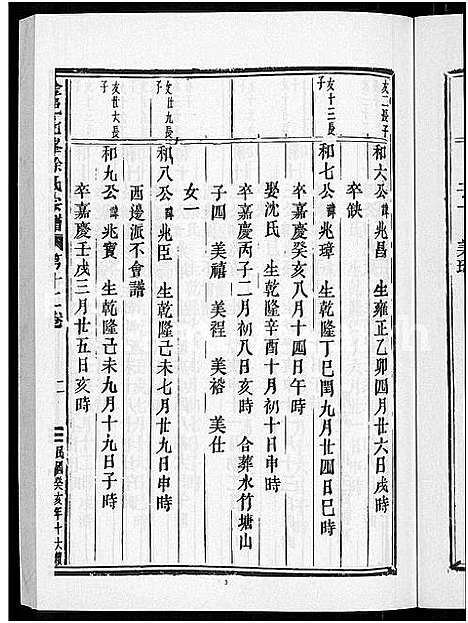 亥二長子
和六公諱兆昌 生雍正乙卯四月廿六日戌時
卒缺
亥十三長子
和七公諱兆璋 生乾隆丁巳閏九月廿四日巳時
卒嘉慶癸亥八月十四日午時
娶沈氏 生乾隆辛酉十月初十日申時
卒嘉慶丙子二月初八日亥時 合葬水竹塘山
子四 美禧 美程 美裕 美仕
女一
文廿九長子
和八公諱兆臣 生乾隆己未七月廿九日申時
西邊派不會譜
亥廿六長子
和九公諱兆寶 生乾隆己未九月十九日子時
卒嘉慶壬戌三月廿五日亥時
徐氏宗譜 第十二卷
二
民國癸亥年十六
3